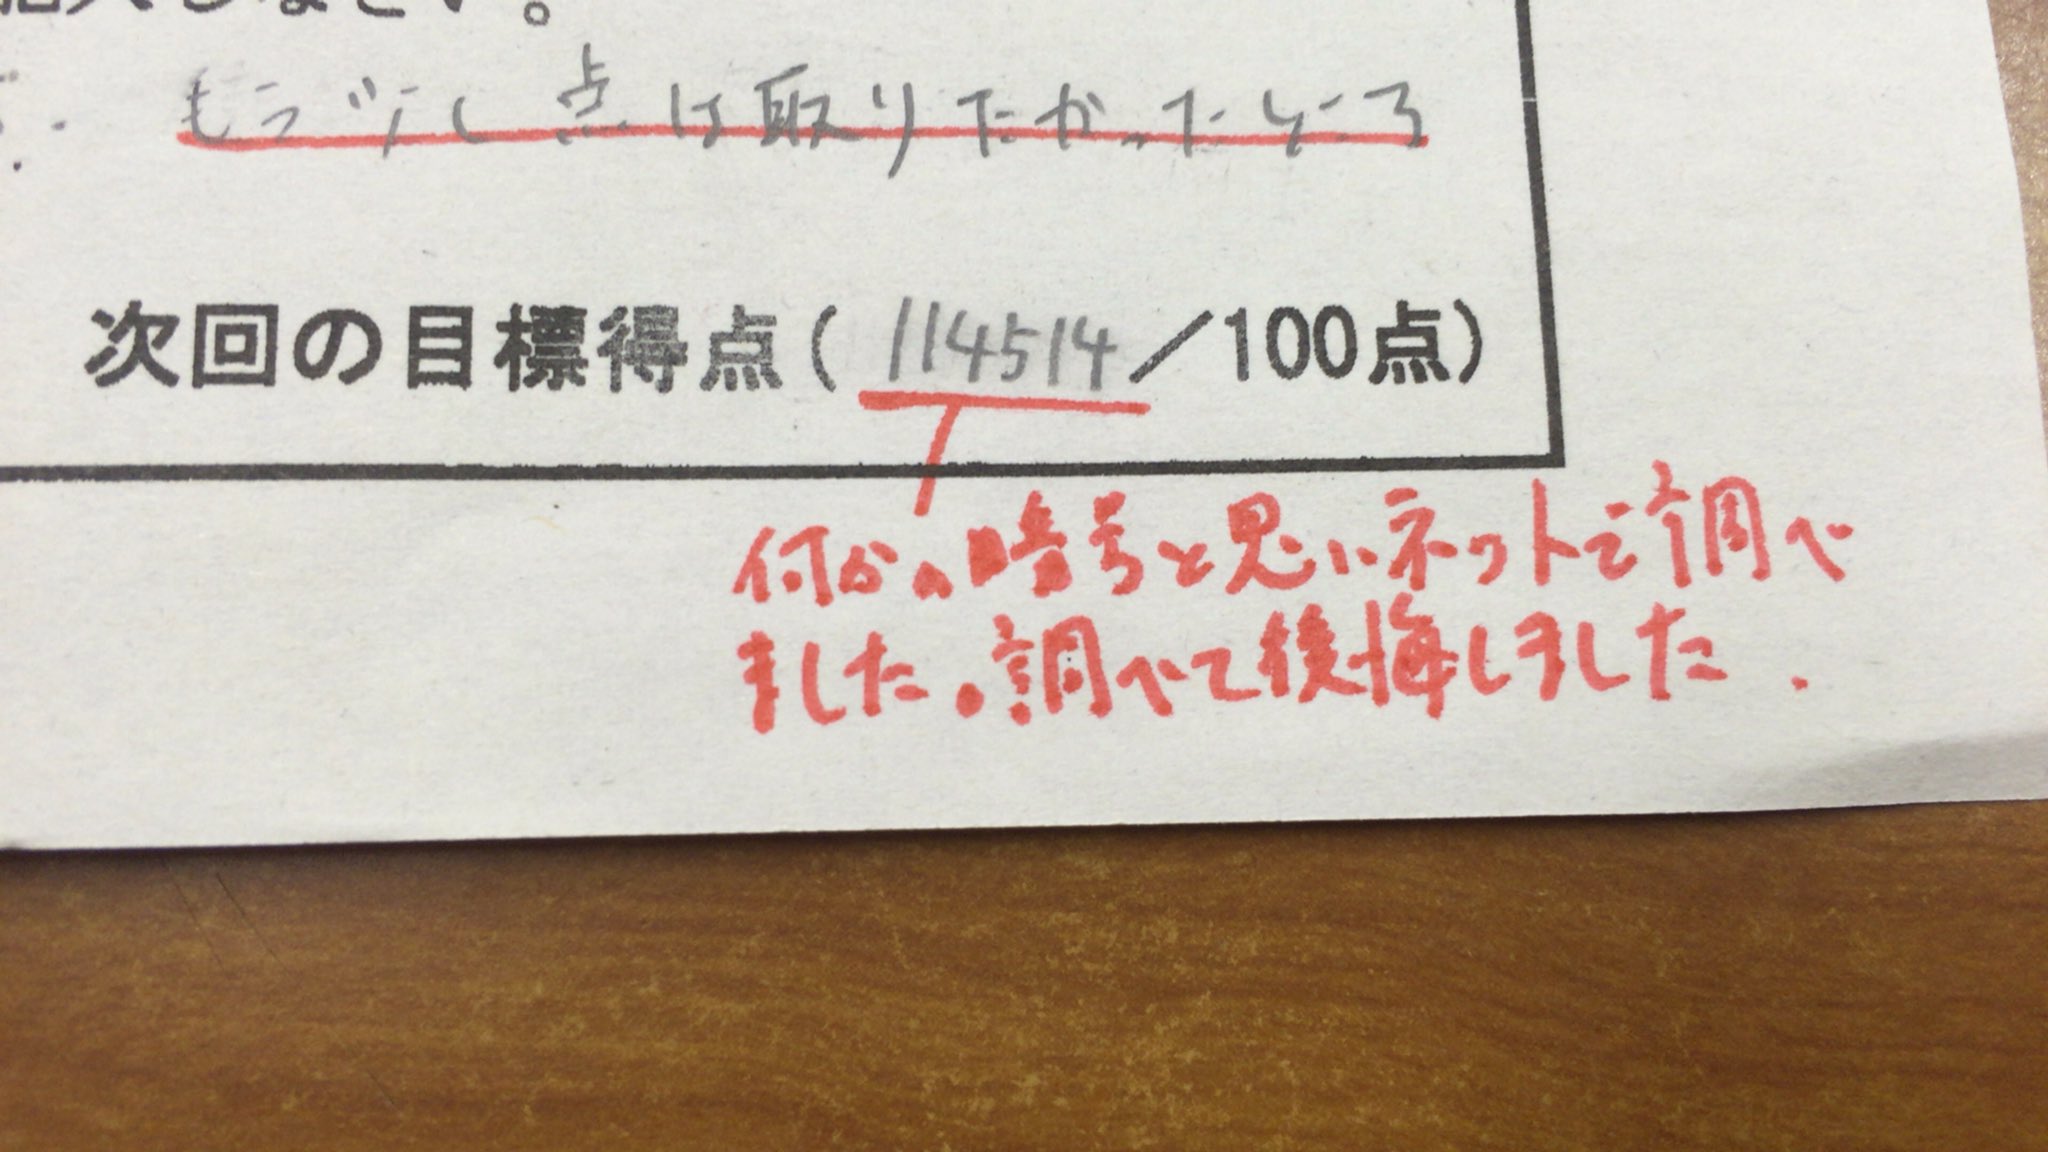 もう少し点は取りたかったところ
次回の目標得点( 114514／100点)
何かの暗号と思いネットで調べ
ました。調べて後悔しました.